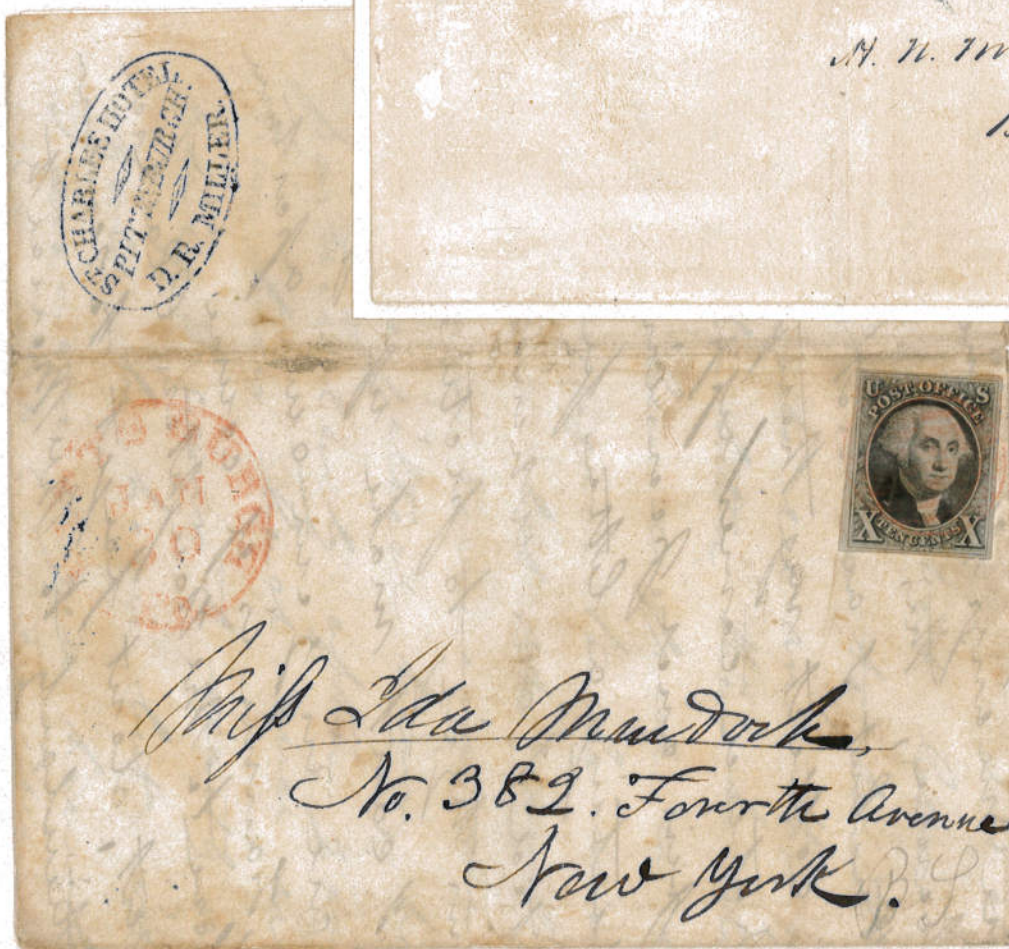 ST CHARLES HOTEL.
PITTSBURGH.
D. R. MILLER.
H. N.
PITTSBURGH
JAN
30
U S
POST OFFICE
X TEN CENTS X
Miss Ida Murdock,
No. 382. Fourth Avenue
New York.